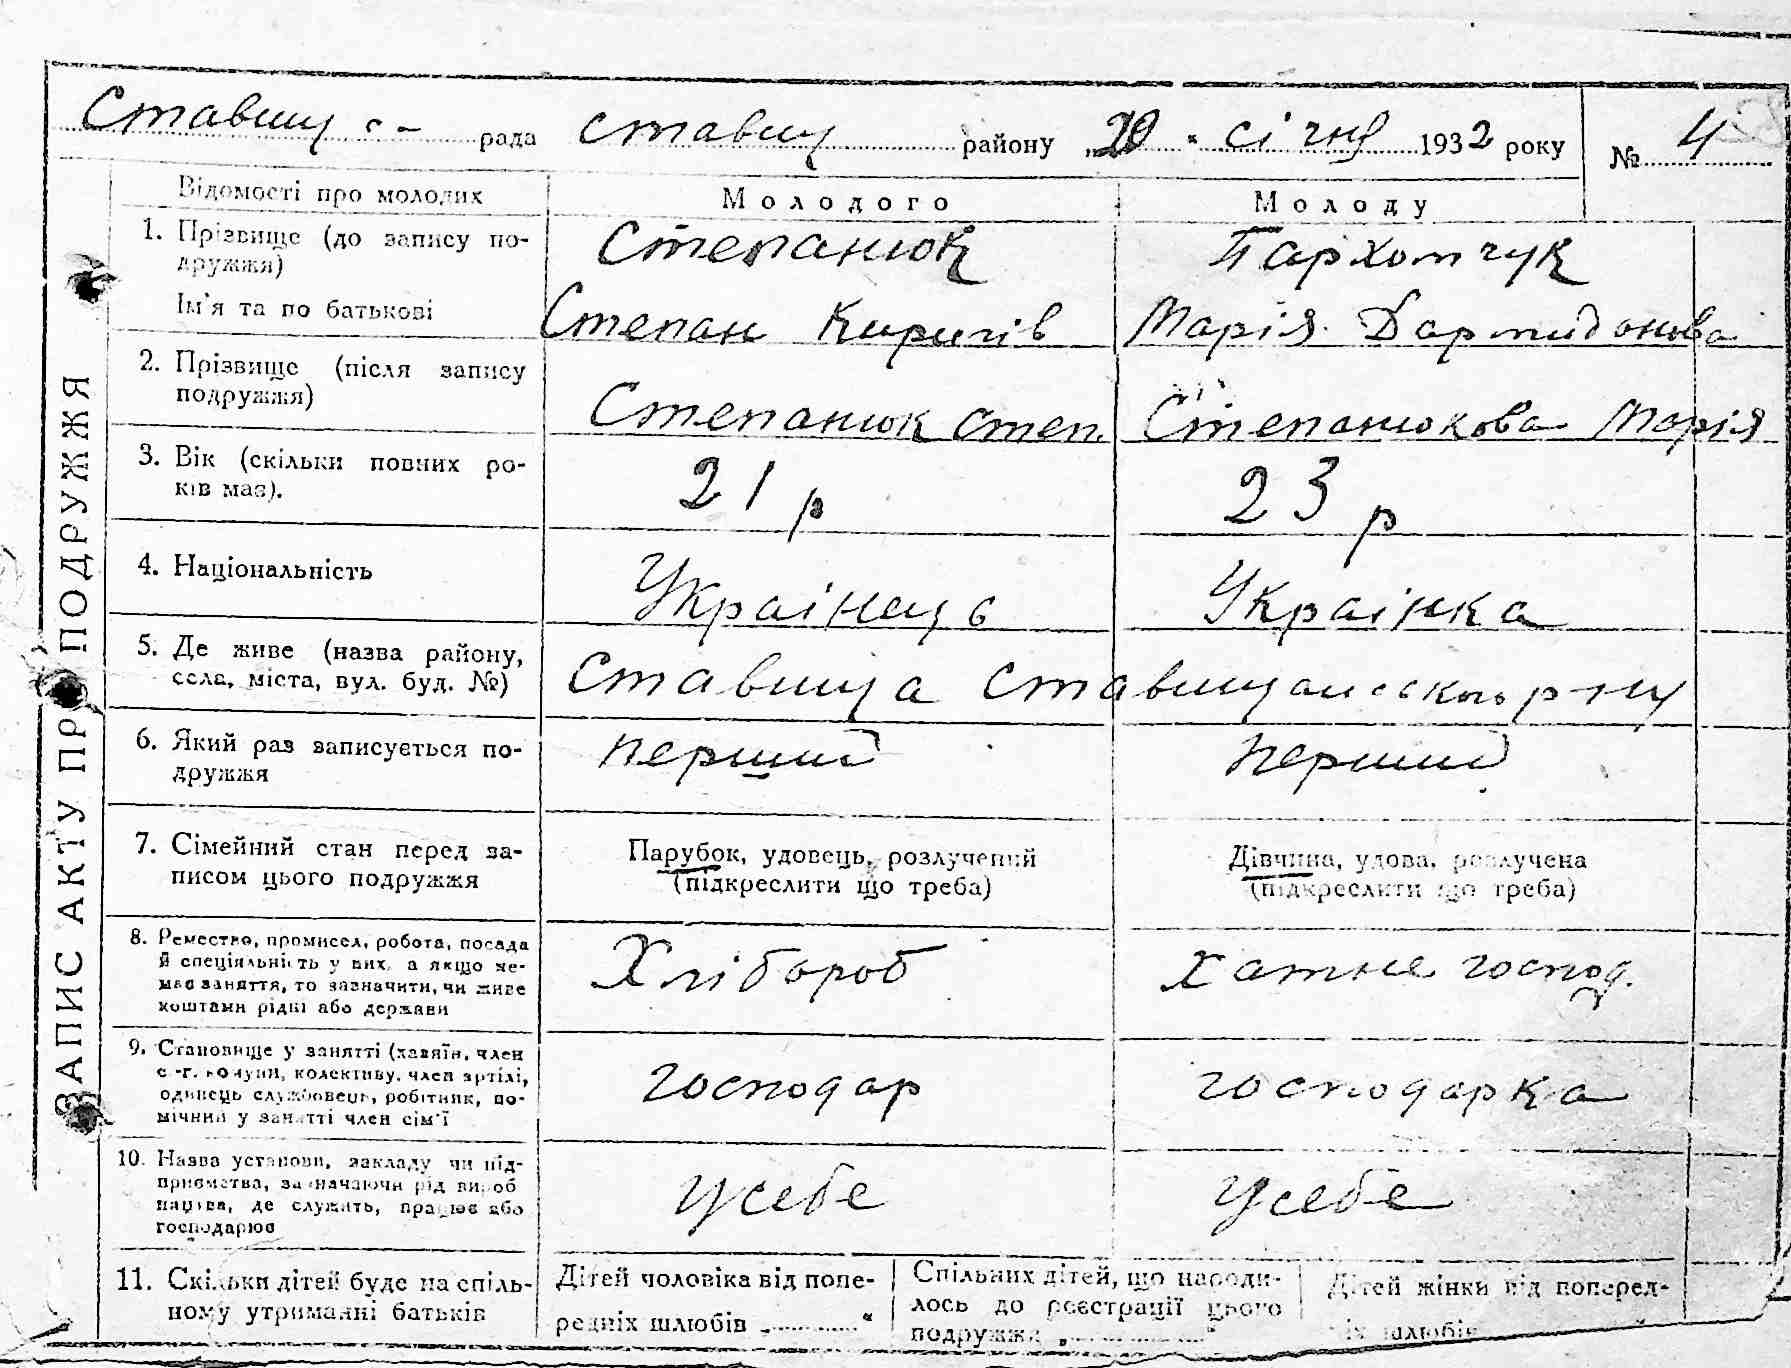 Ставищ с- рада ставищ району „20 " січня 1932 року № 4
Відомості про молодих Молодого Молоду
1. Прізвище (до запису по- Степанюк Пархомчук
дружжя)
Ім'я та по батькові Степан Киричів Марія Дармидонова
2. Прізвище (після запису
подружжя) Степанюк Степ. Степанюкова Марія
3. Вік (скільки повних ро- 21 р 23 р
ків має).
4. Національність Украінець Украінка
5. Де живе (назва району,
села, міста, вул. буд. №) Ставища Ставищанського р-ну
6. Який раз записується по- перший перший
дружжя
7. Сімейний стан перед за- Парубок, удовець, розлучений Дівчина, удова, розлучена
писом цього подружжя (підкреслити що треба) (підкреслити що треба)
8. Ремество, промисел, робота, посада
й спеціяльність у них, а якщо не- Хлібороб Хатнє господ.
має заняття, то зазначити, чи живе
коштами рідні або держави
9. Становище у занятті (хазяїн, член
с.-г. комуни, колективу, член артілі, господар господарка
одинець службовець, робітник, по-
мічний у занятті член сім'ї
10. Назва установи, закладу чи під-
приємства, зазначаючи рід вироб усебе усебе
ництва, де служить, працює або
господарює
11. Скільки дітей буде на спіль- Дітей чоловіка від попе- Спільних дітей, що народи- Дітей жінки від поперед-
ному утриманні батьків редніх шлюбів „ " лось до реєстрації цього ніх шлюбів
подружжя „ "
ЗАПИС АКТУ ПРО ПОДРУЖЖЯ